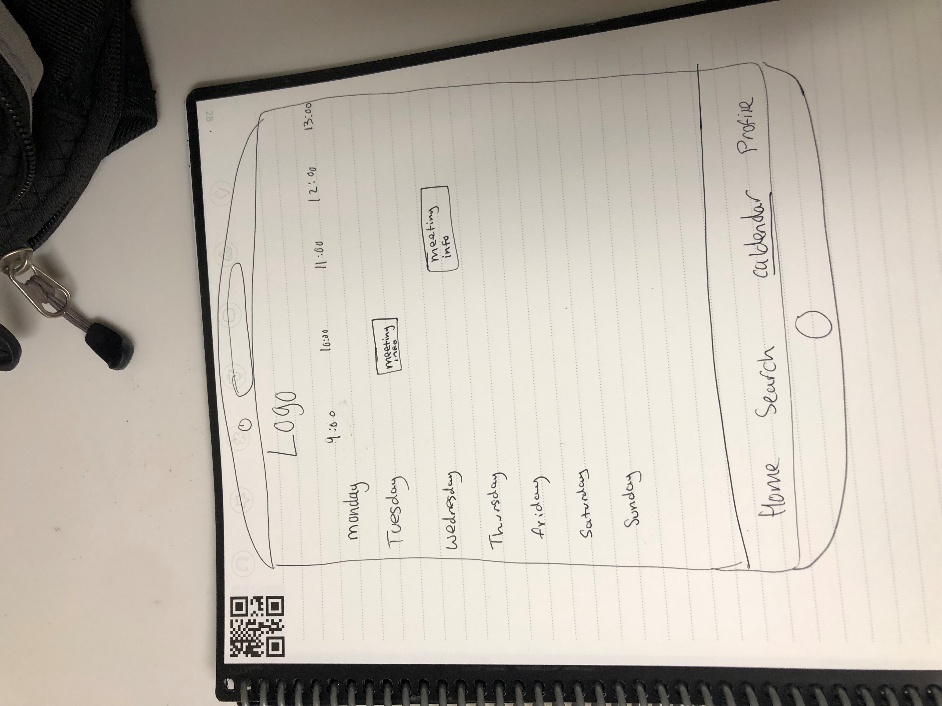 Logo
9:00 10:00 11:00 12:00 13:00
Monday
Tuesday
meeting
info
Wednesday
meeting
info
Thursday
friday
Saturday
Sunday
Home Search caldendar Profile